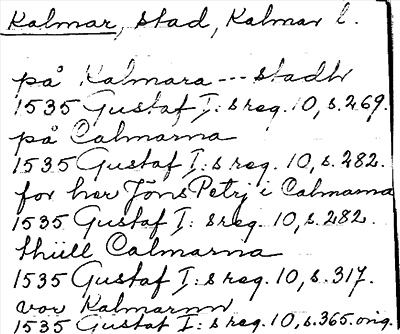 Kalmar, stad, Kalmar l.
på Kalmara --- stadh
1535 Gustaf I:s reg. 10, s. 269.
på Calmarna
1535 Gustaf I:s reg. 10, s. 282.
for her Jöns Petrj i Calmarna
1535 Gustaf I:s reg. 10, s. 282.
thiill Calmarna
1535 Gustaf I:s reg. 10, s. 317.
vor Kalmarnn
1535 Gustaf I:s reg. 10, s. 365. orig.